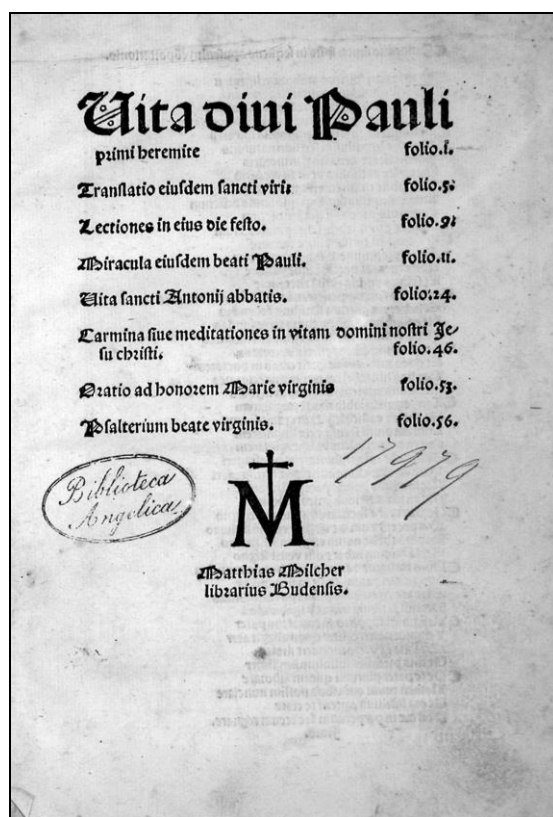 Vita divi Pauli
primi heremite folio.i.
Translatio eiusdem sancti viri: folio.5.
Lectiones in eius die festo. folio.9.
Miracula eiusdem beati Pauli. folio.11.
Vita sancti Antonij abbatis. folio.24.
Carmina sive meditationes in vitam domini nostri Je-
su christi. folio.46.
Oratio ad honorem Marie virginis folio.53.
Psalterium beate virginis. folio.56.
17979
Biblioteca
Angelica.
M
Matthias Milcher
librarius Budensis.